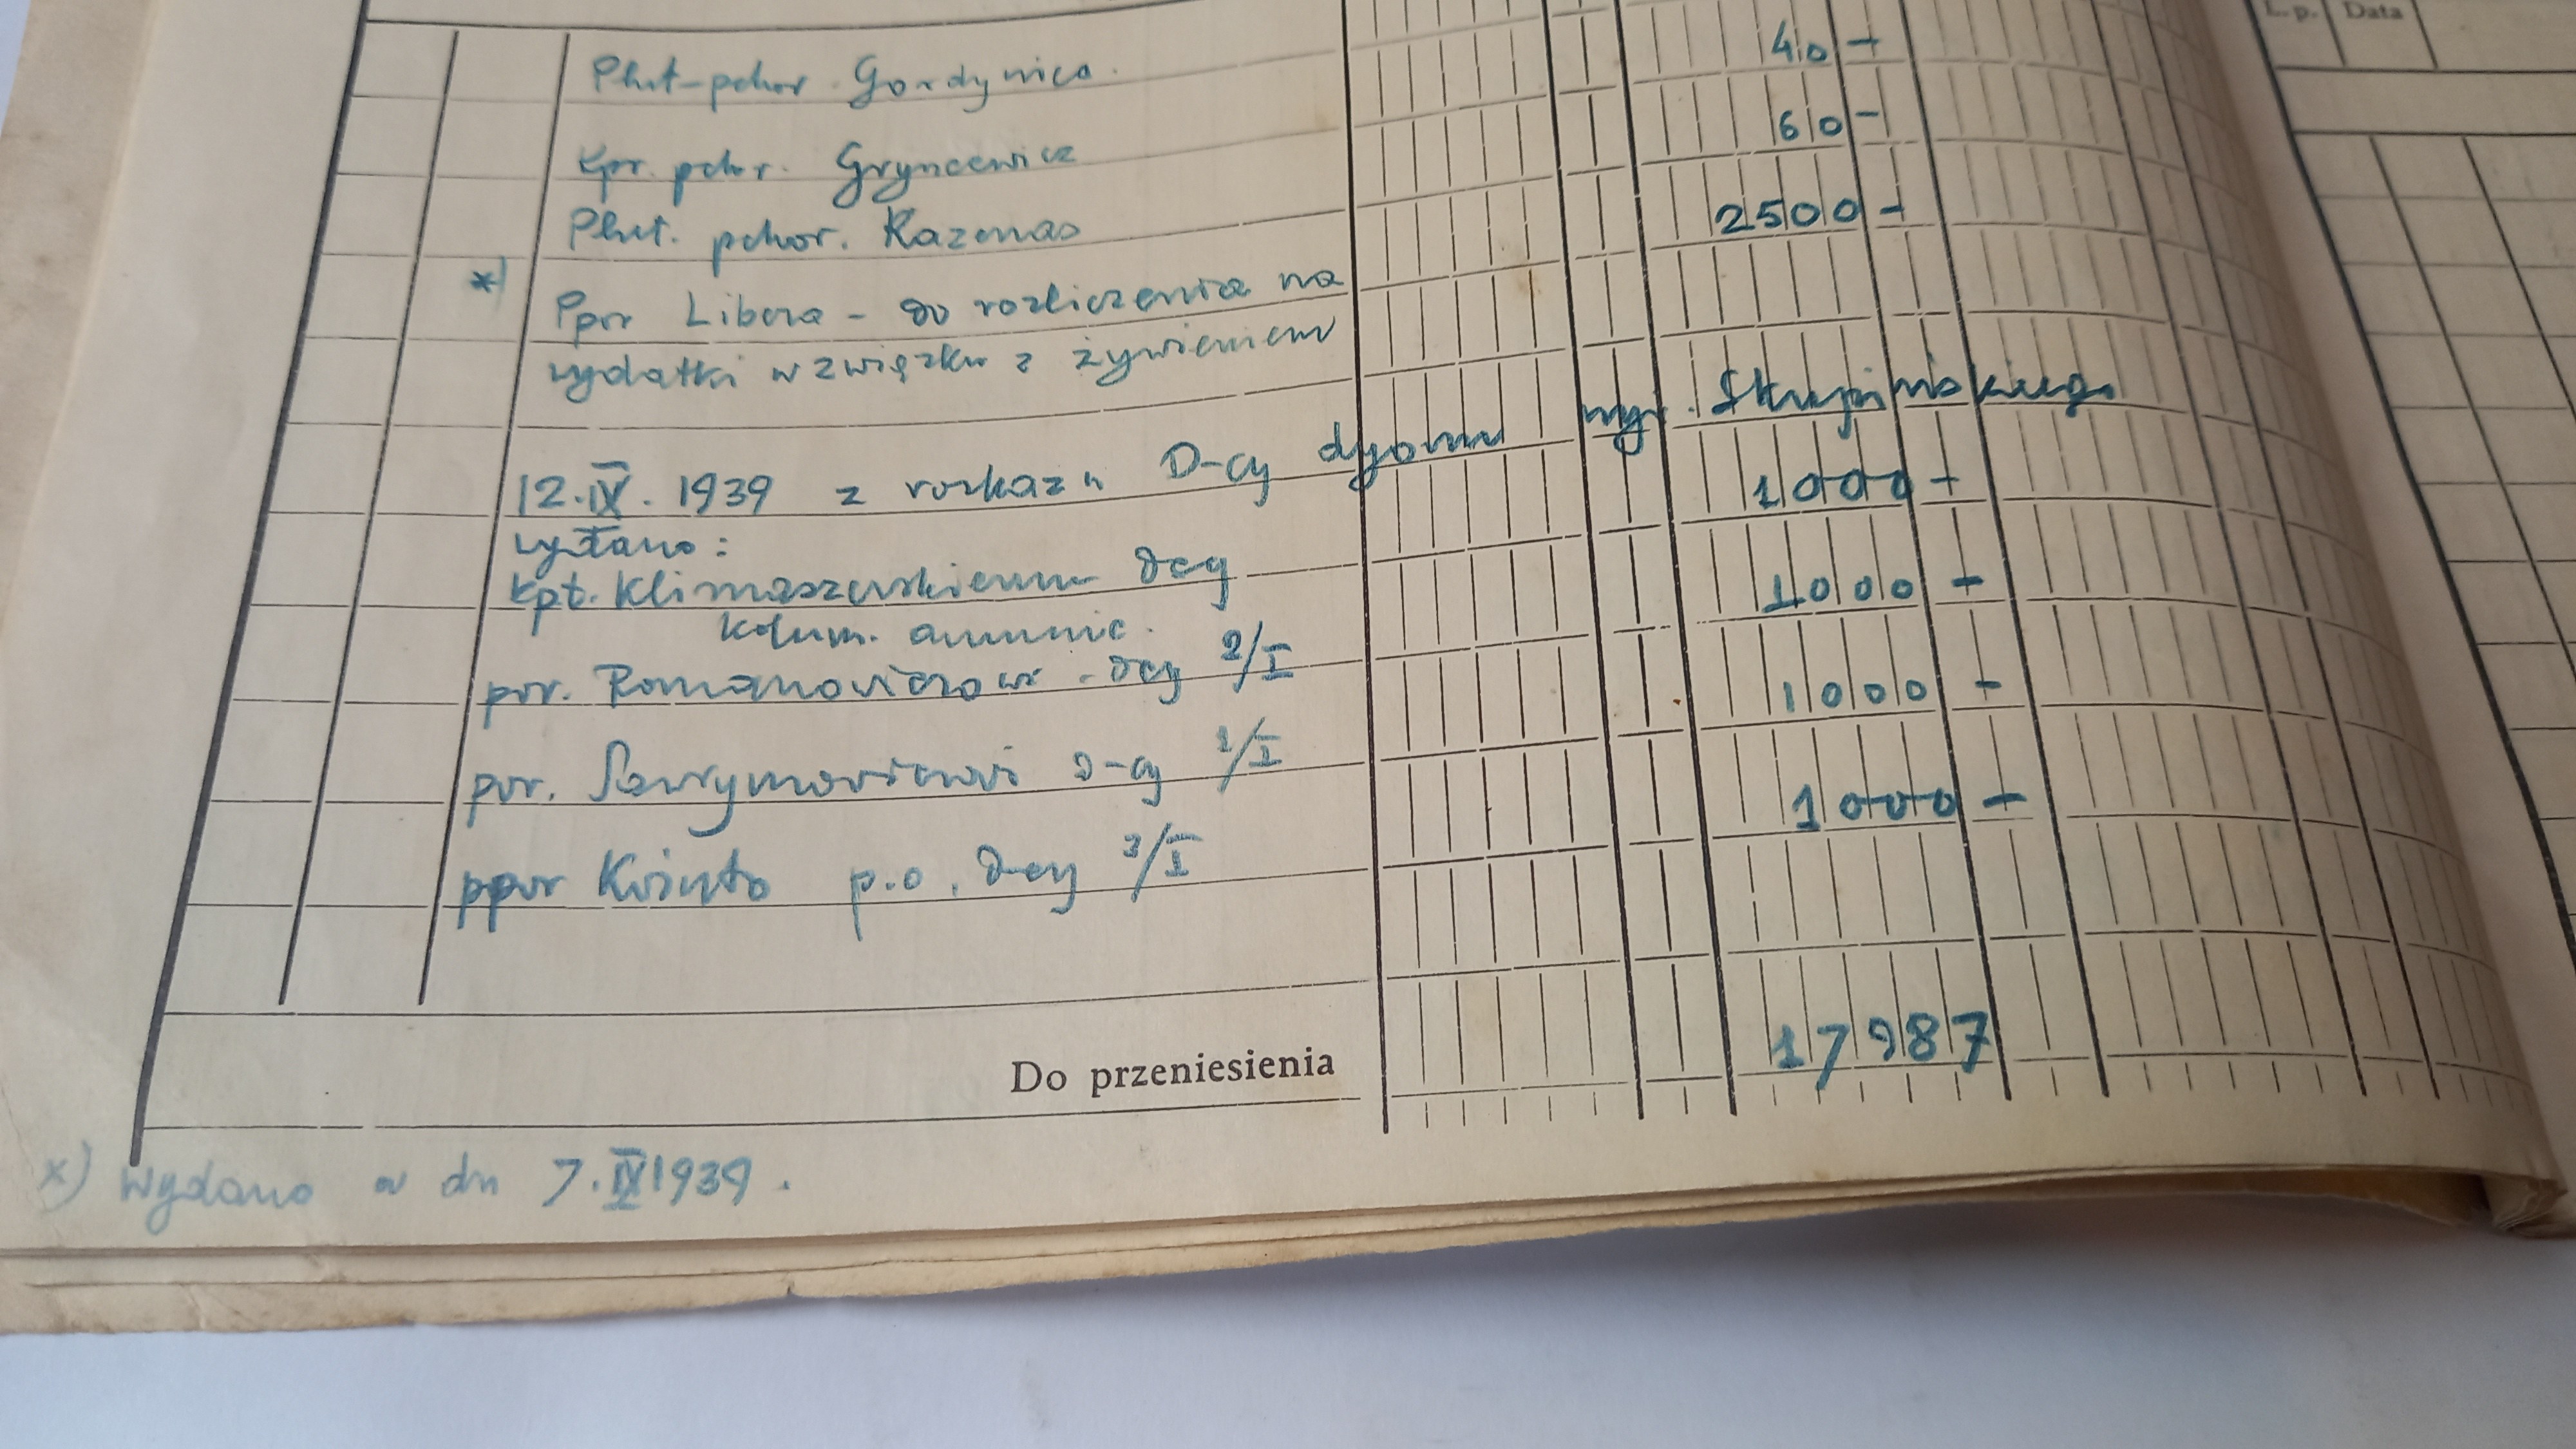 L. p. Data
Plut-pchor. Gordynica. 40 -
Kpr. pchor. Gryncewicz 60 -
Plut. pchor. Kazenas 2500 -
*) Ppor Libera - do rozliczenia na
wydatki w związku z żywieniem
12.IX.1939 z rozkazu D-cy dyonu mjr. Skupińskiego
wydano: 1000 -
kpt. Klimaszewskiemu dcy
kolum. amunic. 1000 -
por. Romanowiczowi - dcy 2/I
por. Sawrymowiczowi D-cy 1/I 1000 -
ppor Kwinto p.o. D-cy 3/I 1000 -
Do przeniesienia 17987
x) Wydano w dn 7.IX1939.